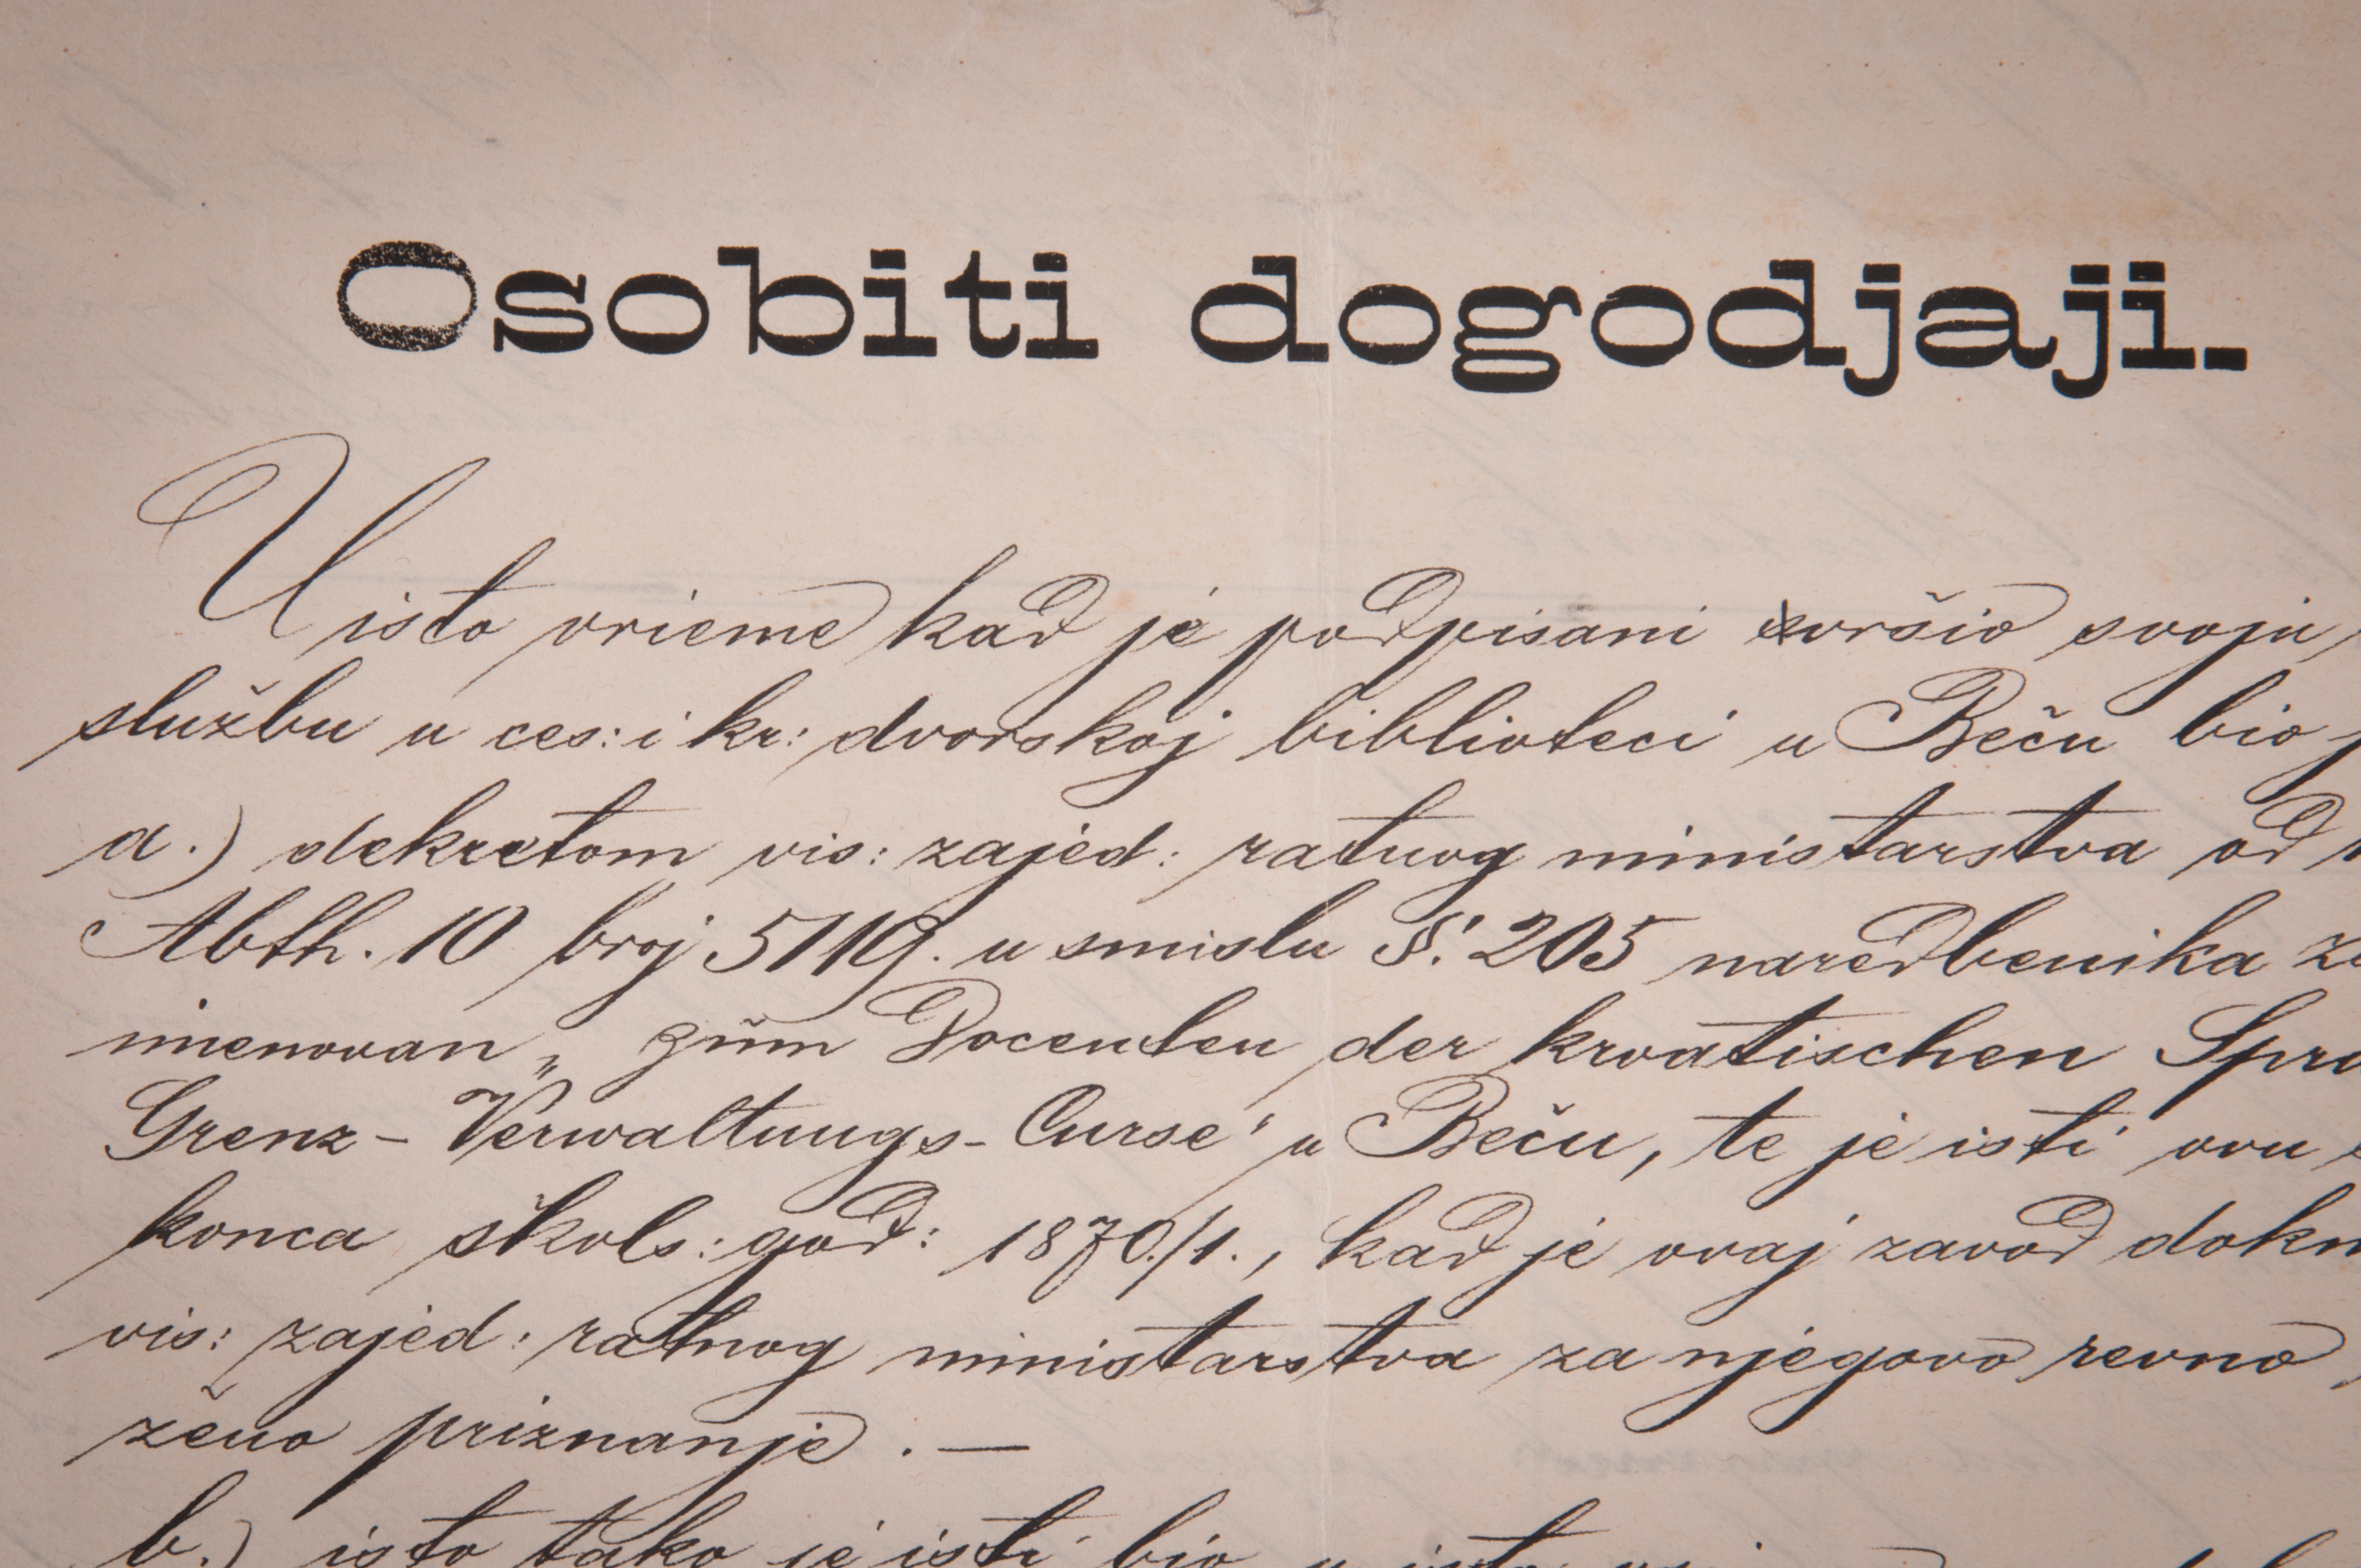 Osobiti dogodjaji.
U isto vrieme kad je podpisani vršio svoju
službu u ces: i kr: dvorskoj biblioteci u Beču bio
a.) dekretom vis: zajed: ratnog ministarstva od
Abth. 10 broj 5119. u smislu §. 205 naredbenika
imenovan „ zum Docenten der kroatischen Spra
Grenz - Verwaltungs - Curse" u Beču, te je isti ovu
konca škols: god: 1870./1., kad je ovaj zavod dokn
vis: zajed: ratnog ministarstva za njegovo revno
ženo priznanje. —
b.) isto tako je isti bio u isto